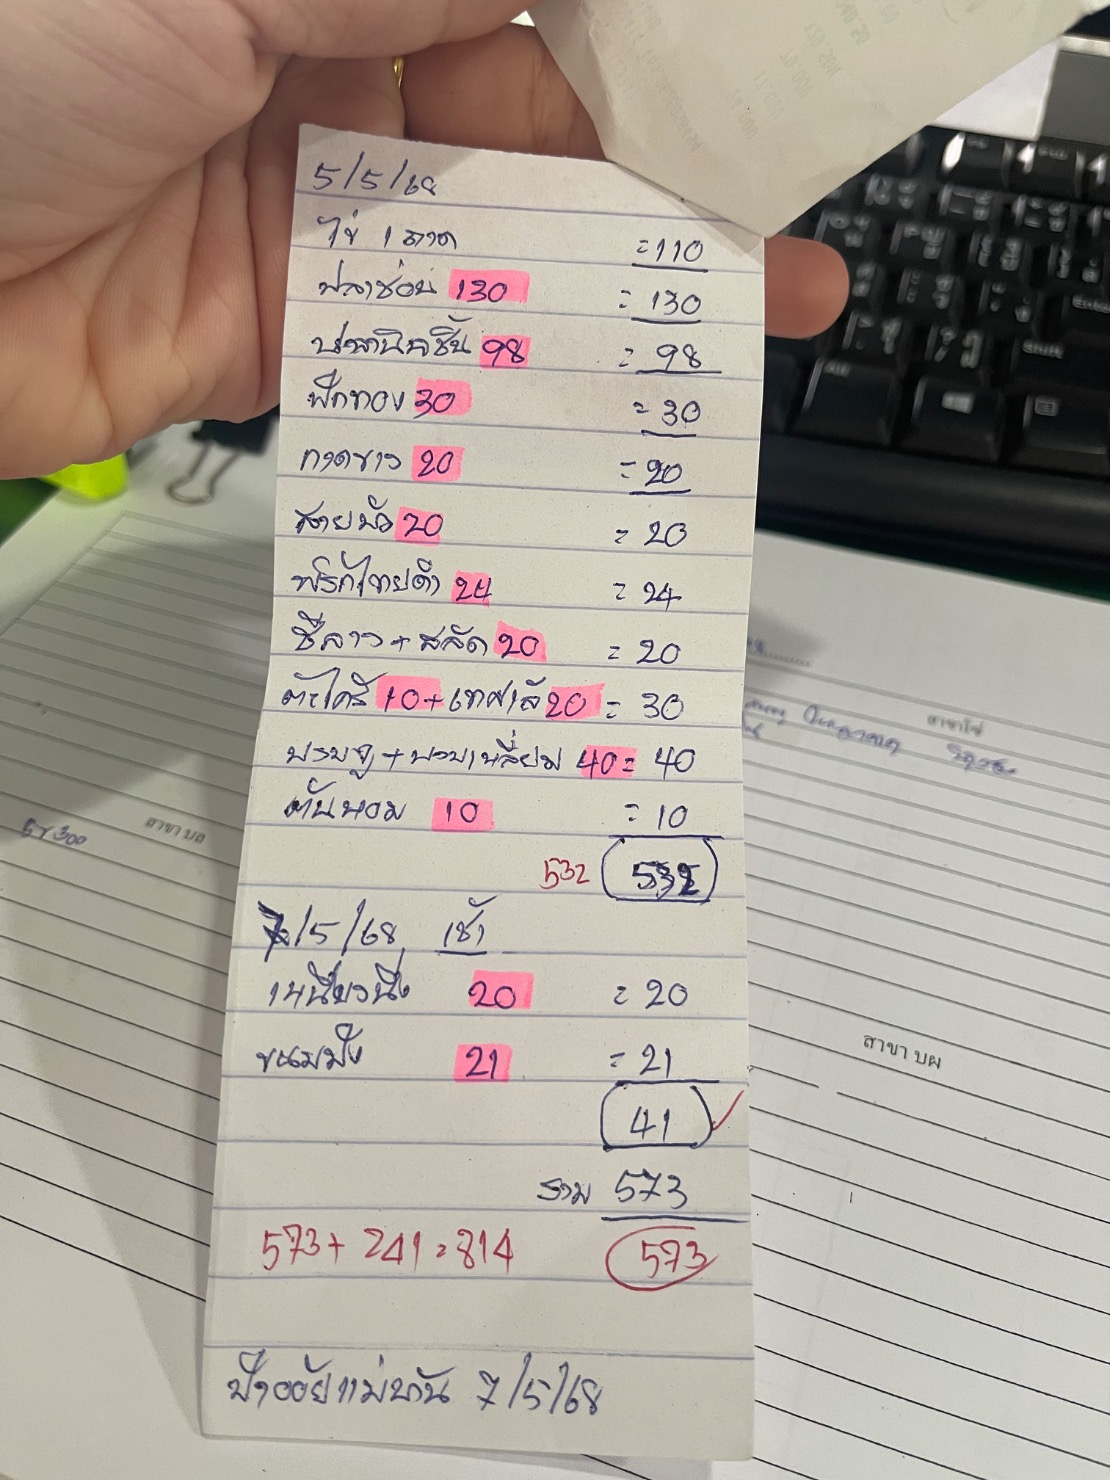 5/5/68
ไข่ 1 ถาด =110
ปลาช่อน 130 = 130
ปลานิลชิ้น 98 = 98
ฟักทอง 30 = 30
กวดขาว 20 = 20
สายบัว 20 = 20
พริกไทยดำ 24 = 24
ชีลาว + สลัด 20 = 20
ตะไคร้ 10 + เทศเล้ 20 = 30
บวบงู + บวบเหลี่ยม 40 = 40
ต้นหอม 10 = 10
532 532
7/5/68 เช้า
เหนียวนึ่ง 20 = 20
ขนมปัง 21 = 21
41
รวม 573
573 + 241 = 814 573
ป้าอ้อยแม่บ้าน 7/5/68
สาขา บล
สาขา บผ